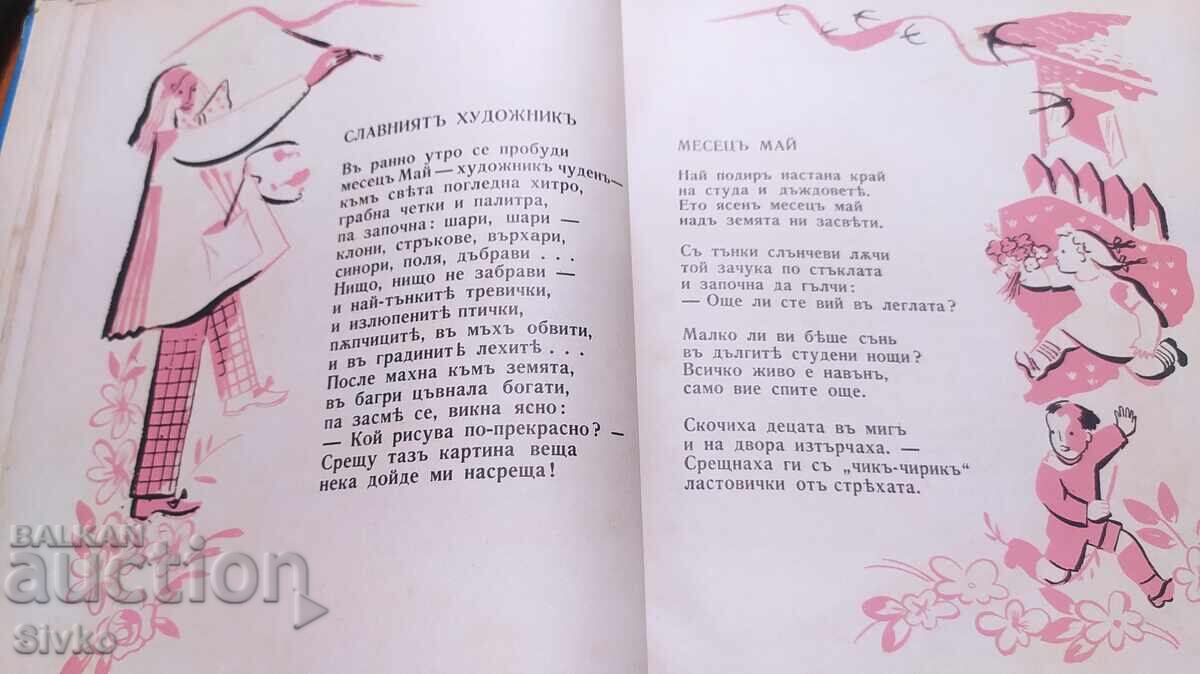 СЛАВНИЯТЪ ХУДОЖНИКЪ
Въ ранно утро се пробуди
месецъ Май — художникъ чуденъ—
къмъ свѣта погледна хитро,
грабна четки и палитра,
па започна: шари, шари —
клони, стръкове, върхари,
синори, поля, дъбрави . . .
Нищо, нищо не забрави —
и най-тънкитѣ тревички,
и излюпенитѣ птички,
пѫпчицитѣ, въ мъхъ обвити,
и въ градинитѣ лехитѣ . . .
После махна къмъ земята,
въ багри цъвнала богати,
па засмѣ се, викна ясно:
— Кой рисува по-прекрасно? —
Срещу тазъ картина веща
нека дойде ми насреща!
МЕСЕЦЪ МАЙ
Най подиръ настана край
на студа и дъждоветѣ.
Ето ясенъ месецъ май
надъ земята ни засвѣти.
Съ тънки слънчеви лѫчи
той зачука по стъклата
и започна да гълчи:
— Още ли сте вий въ леглата?
Малко ли ви бѣше сънь
въ дългитѣ студени нощи?
Всичко живо е навънъ,
само вие спите още.
Скочиха децата въ мигъ
и на двора изтърчаха. —
Срещнаха ги съ „чикъ-чирикъ“
ластовички отъ стрѣхата.
BALKAN
auction
Sivko